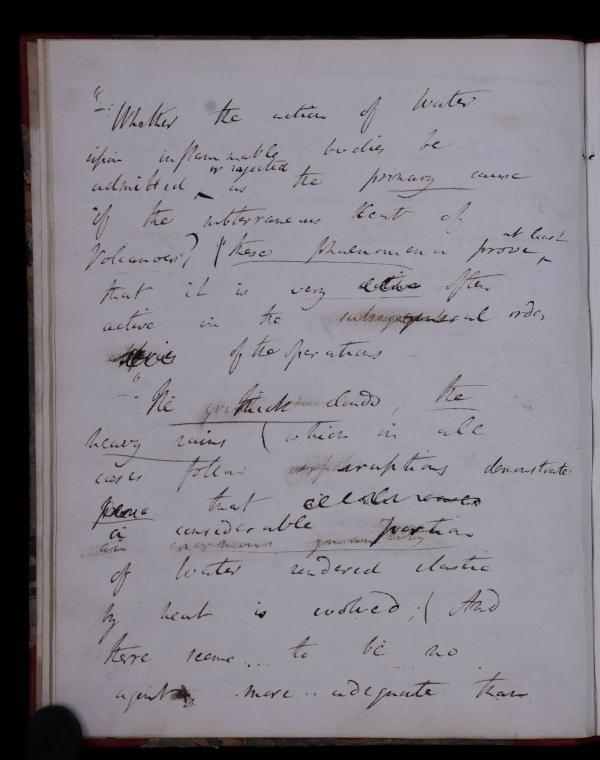 "–: Whether the action of Water
upon inflammable bodies be
admitted or rejected as the primary cause
of the subterraneous Heat of
Volcanoes? (these phaenomena prove, at least
that it is very active often
active in the general order
of the operations
– " The thick clouds, the
heavy rains (which in all
cases follow eruptions demonstrate
prove that
a considerable portion
an enormous quantity
of Water rendered elastic
by heat is evolved; (And
there seems to be no
agent more adequate than